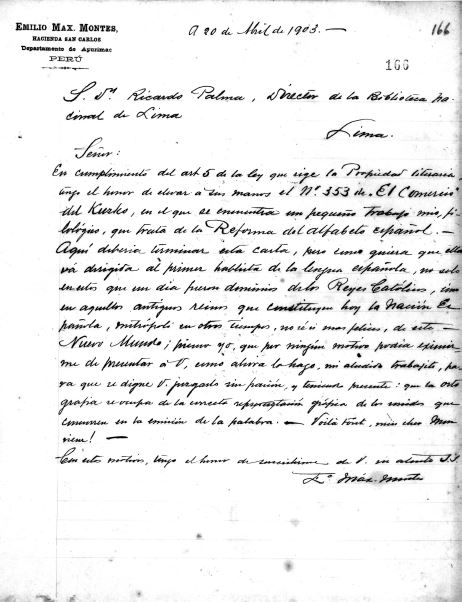 EMILIO MAX. MONTES,
HACIENDA SAN CARLOS
Departamento de Apurimac
PERÚ
A 20 de Abril de 1903. —
166
166
S. Dn Ricardo Palma, Director de la Biblioteca Na-
cional de Lima
Lima.
Señor:
En cumplimiento del art 5 de la ley que rige la Propiedad literaria
tengo el honor de elevar á sus manos el No. 353 de "El Comercio"
del Kuzko, en el que se encuentra un pequeño trabajo mio, fi-
lológico, que trata de la Reforma del alfabeto español. —
Aquí deberia terminar esta carta, pero como quiera que ella
vá dirigida al primer hablista de la lengua española, no solo
en estos que un dia fueron dominios de los Reyes Católicos, sino
en aquellos antiguos reinos que constituyen hoy la Nación Es-
pañola, metrópoli en otros tiempos, no sé si mas felices, de este —
Nuevo Mundo; pienso yo, que por ningún motivo podia eximir-
me de presentar á V, como ahora lo hago, mi aludido trabajito, pa-
ra que se digne V. juzgarlo sin pasión, y teniendo presente: que la orto
grafia se ocupa de la correcta representación gráfica de los sonidos que
concurren en la emisión de la palabra. — Voilá tout, mon cher
Con este motivo, tengo el honor de suscribirme de V. su atento S.S.
Eo. Max. Montes